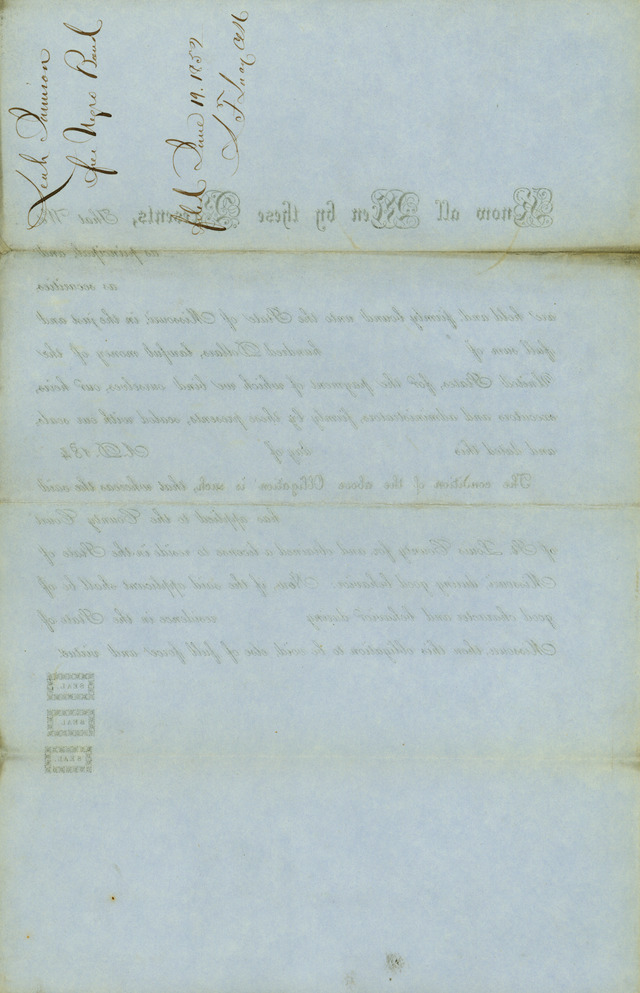 Leah
Free Negro Bond
June 19. 1852
Know all Men by these Presents, That We
as principal, and
as securities
are held and firmly bound unto the State of Missouri, in the just and
full sum of hundred Dollars, lawful money of the
United States, for the payment of which we bind ourselves, our heirs,
executors and administrators, firmly by these presents, sealed with our seals,
and dated this day of A.D. 184
The condition of the above Obligation is such, that whereas the said
has applied to the County Court
of St. Louis County for, and obtained a license to reside in the State of
Missouri, during good behavior. Now, if the said applicant shall be of
good character and behavior during residence in the State of
Missouri, then this obligation to be void, else of full force and virtue.
SEAL.
SEAL.
SEAL.